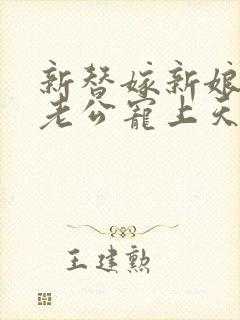 新替嫁新娘
老公宠上天
王建勲